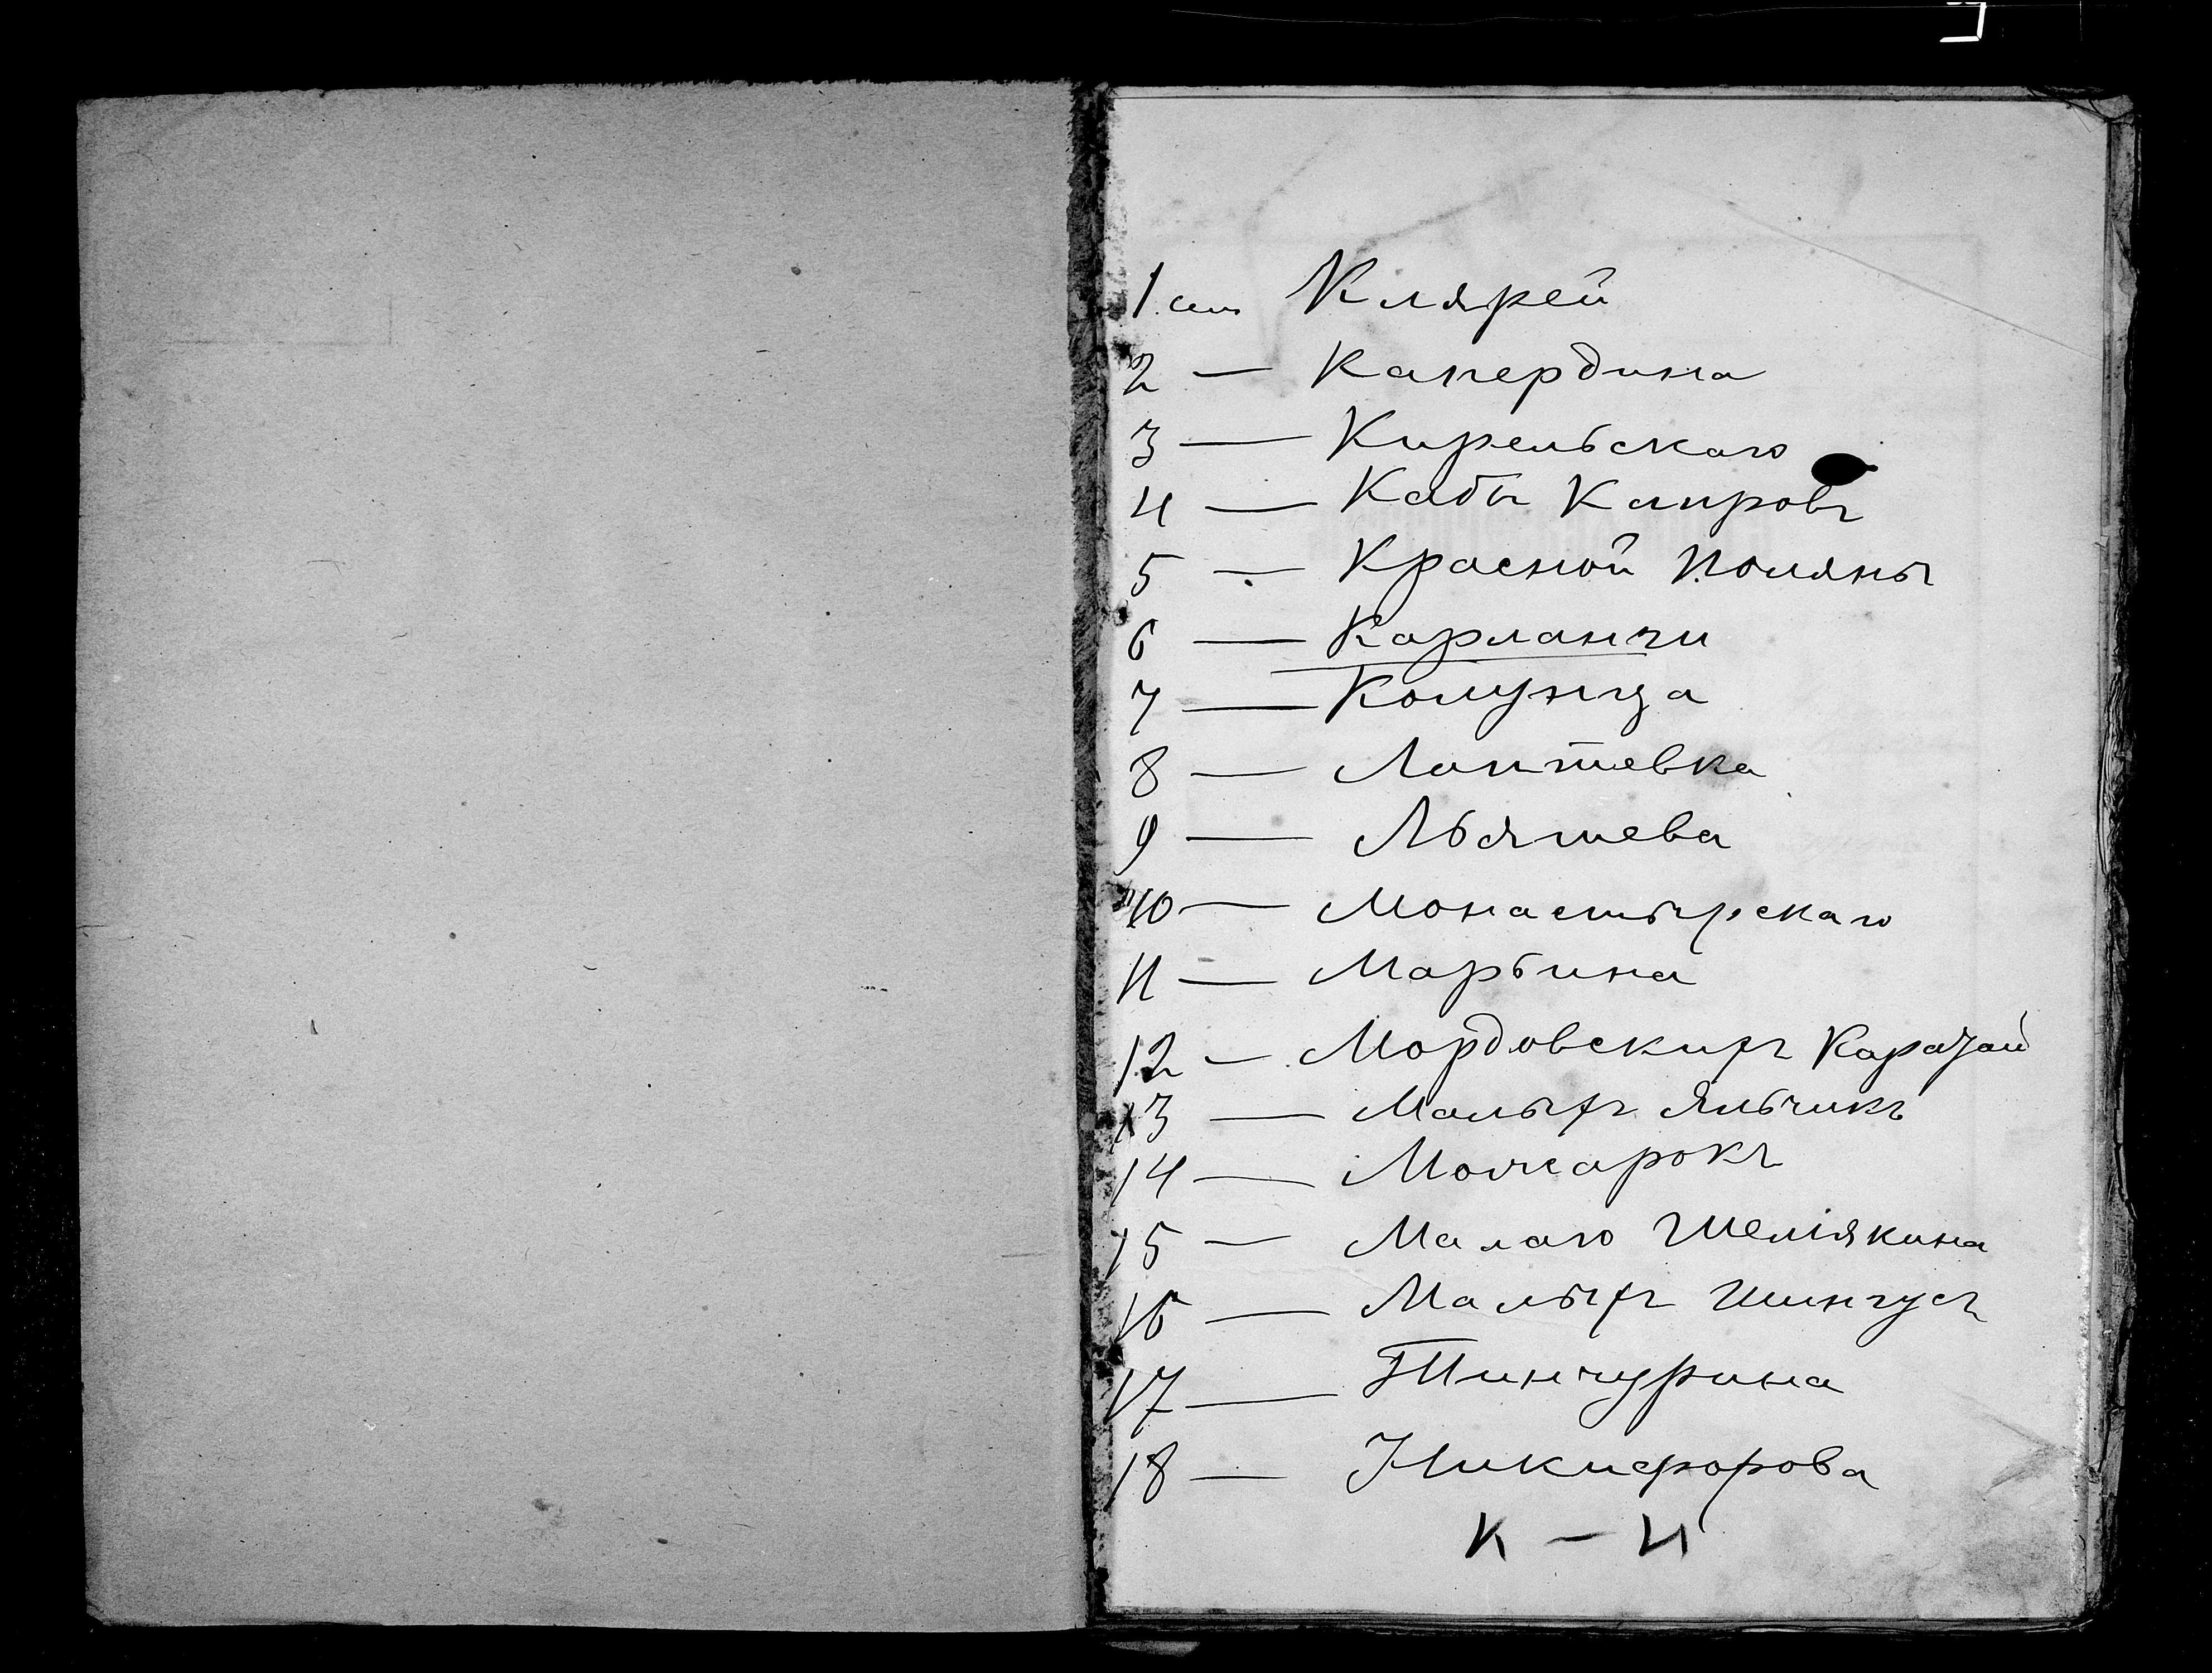 1 сел. Клярей
2 — Капердина
3 — Кирельскаго
4 — Кабы Копровъ
5 — Красной Поляны
6 — Карланги
7 — Колунца
8 — Лаптевка
9 — Льяшева
10 — Монастырскаго
11 — Марьина
12 — Мордовскихъ Каратай
13 — Малыхъ Яльчикъ
14 — Мочсарокъ
15 — Малаго Шемякина
16 — Малыхъ Шингусъ
17 — Тинчурина
18 — Никифорова
К — Н